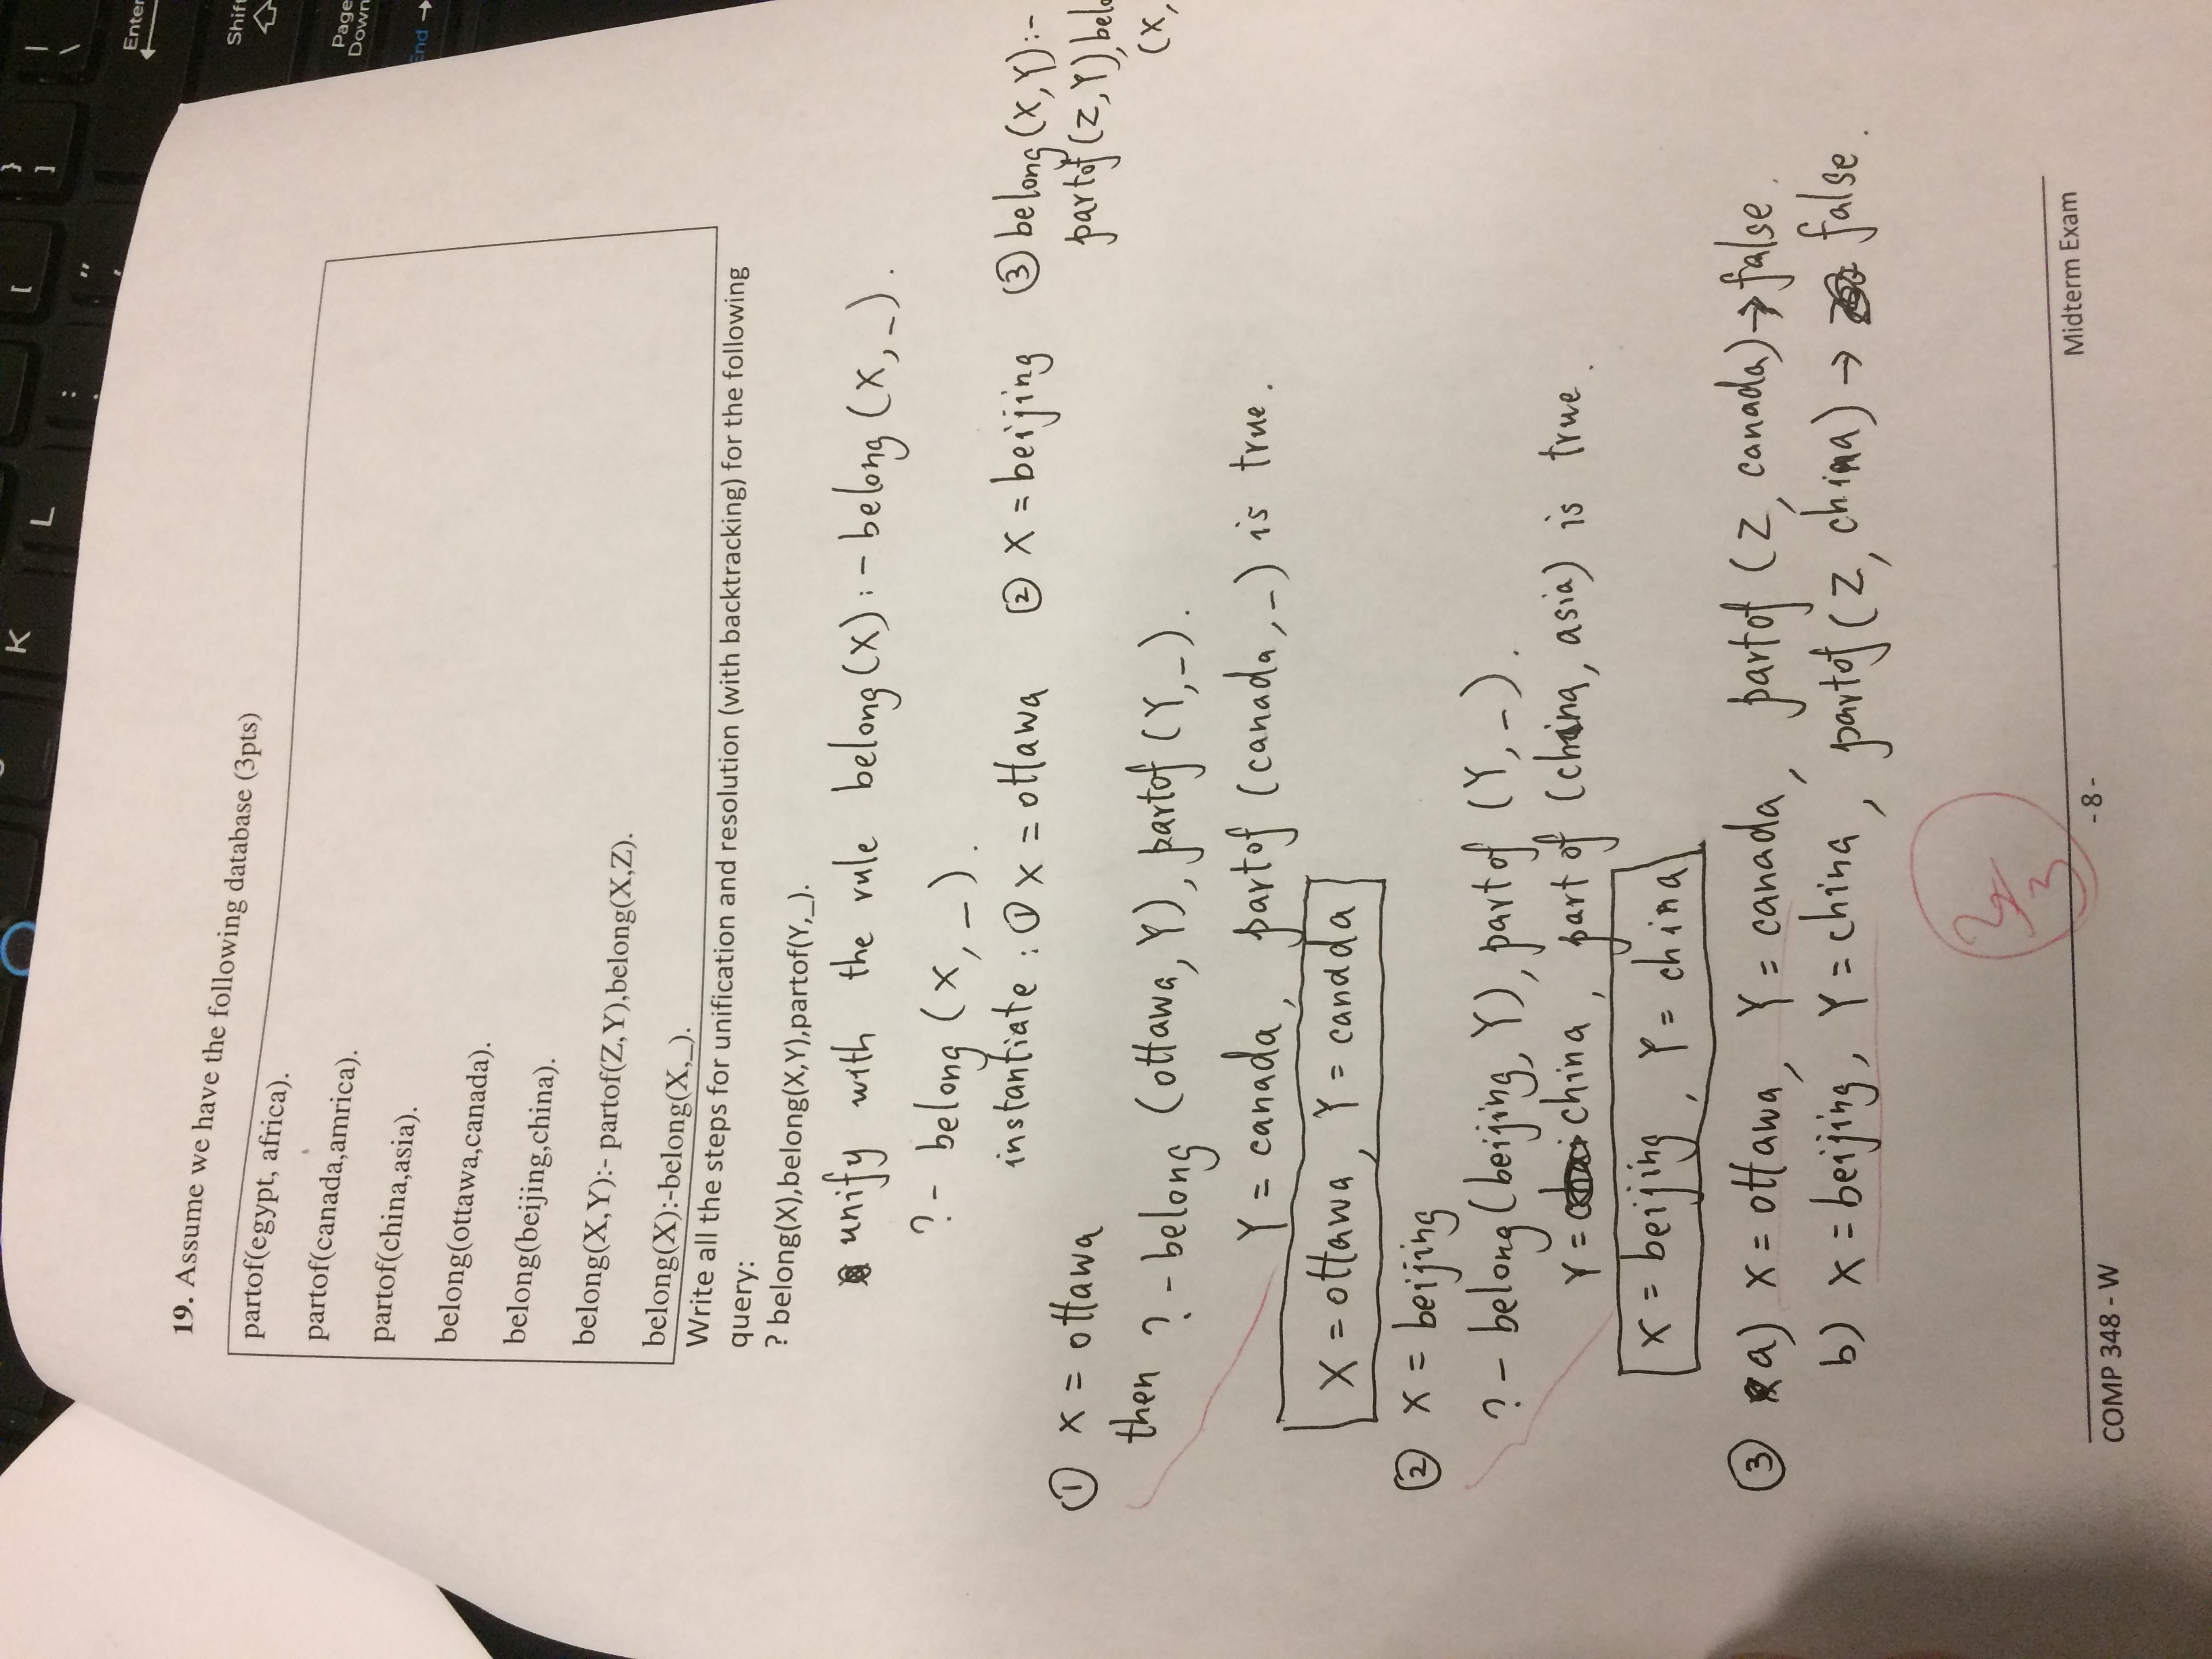 K
L
[
}
]
|
\
:
;
"
'
Enter
Shift
Page
Down
End →
19. Assume we have the following database (3pts)
partof(egypt, africa).
partof(canada,amrica).
partof(china,asia).
belong(ottawa,canada).
belong(beijing,china).
belong(X,Y):- partof(Z,Y),belong(X,Z).
belong(X):-belong(X,_).
Write all the steps for unification and resolution (with backtracking) for the following
query:
? belong(X),belong(X,Y),partof(Y,_).
unify with the rule belong(X):-belong(X,_).
?- belong(X,_).
instantiate: ① X = ottawa ② X = beijing ③ belong(X,Y):-
partof(Z,Y),belo
(X,
① X = ottawa
then ?-belong (ottawa, Y), partof (Y,_).
Y = canada, partof (canada,_) is true.
X = ottawa, Y = canada
② X = beijing
?- belong(beijing, Y), partof (Y,_).
Y = china, part of (china, asia) is true.
X = beijing, Y = china
③ a) X = ottawa, Y = canada, partof (Z, canada) → false.
b) X = beijing, Y = china, partof (Z, china) → false.
3
COMP 348 - W
- 8 -
Midterm Exam